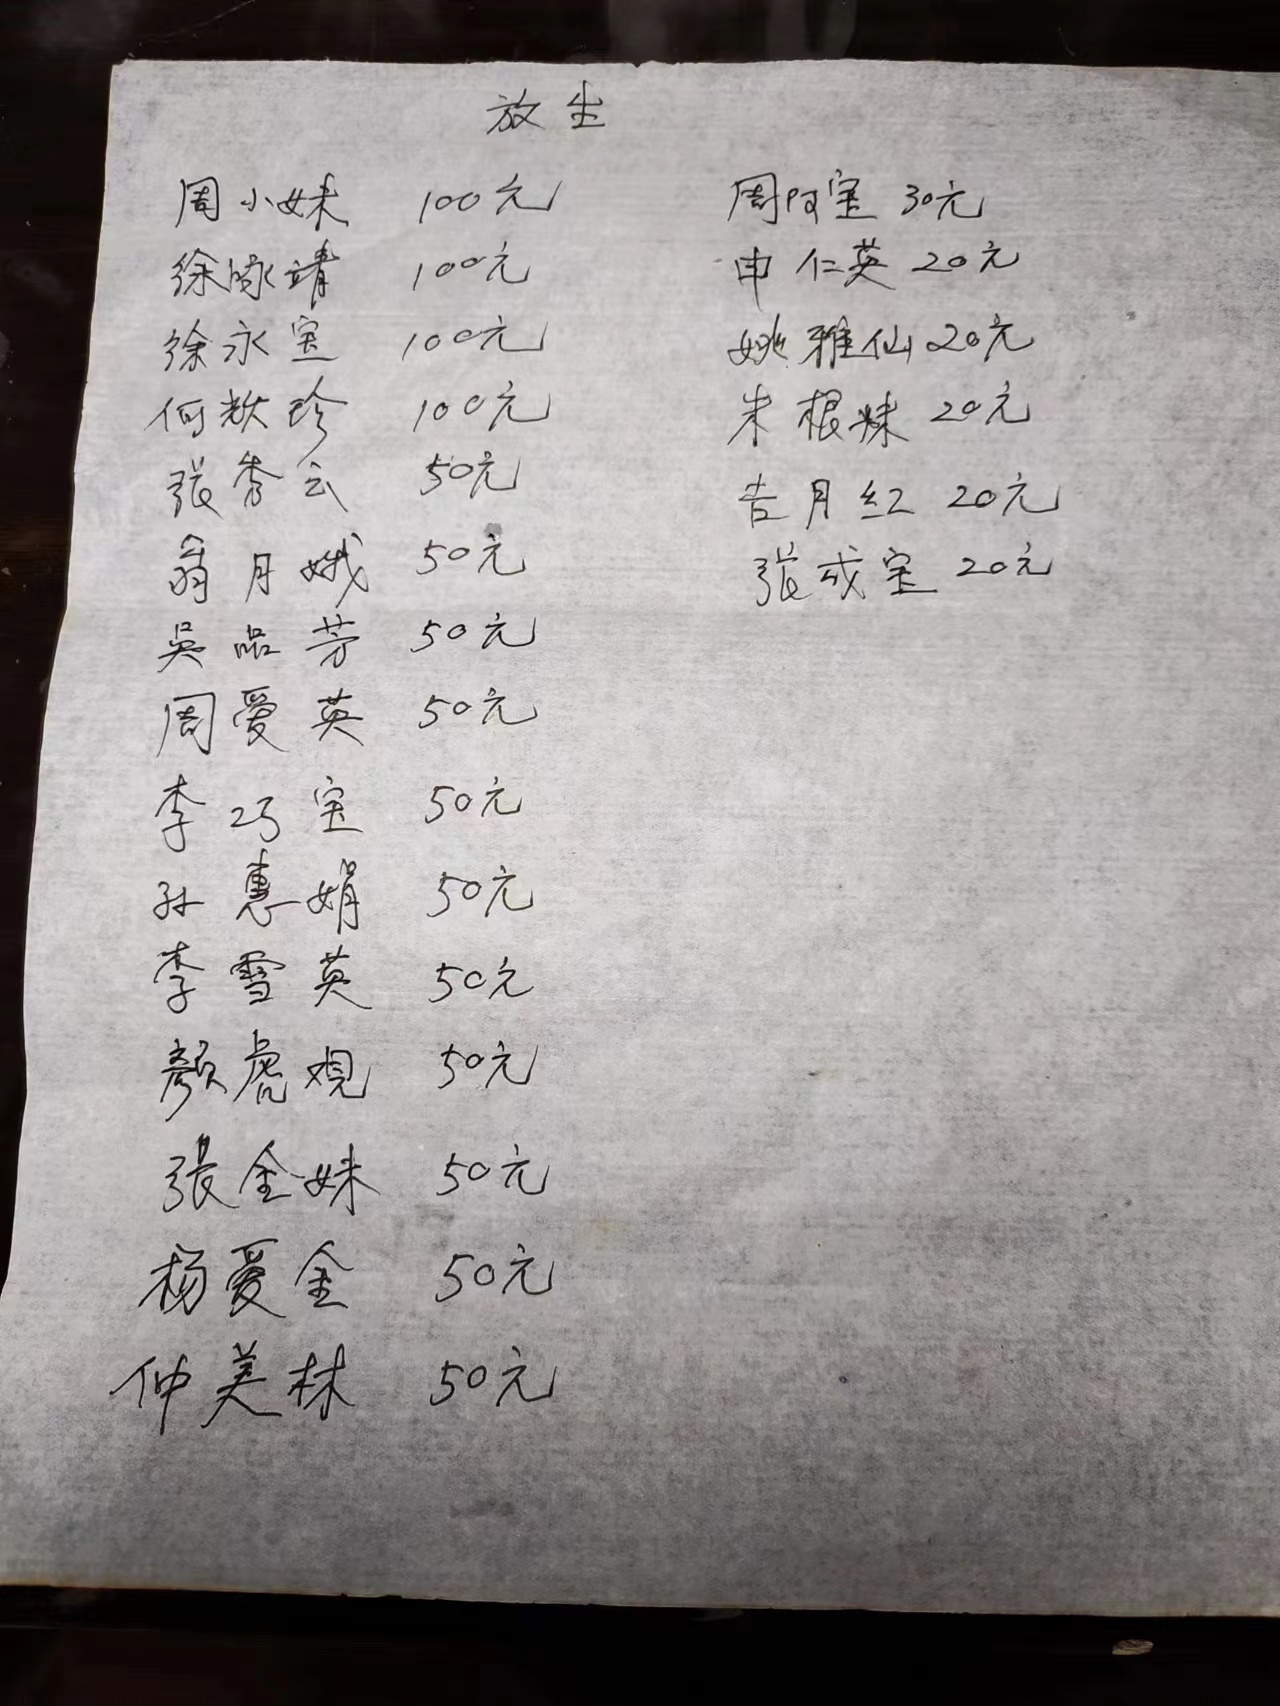 放生
周小妹 100元
徐咏靖 100元
徐永宝 100元
何 珍 100元
张秀云 50元
翁月娥 50元
吳品芳 50元
周爱英 50元
李巧宝 50元
孙惠娟 50元
李雪英 50元
颜虎观 50元
張金妹 50元
杨爱金 50元
仲美林 50元
周阿宝 30元
申仁英 20元
姚雅仙 20元
朱根妹 20元
吉月红 20元
张成宝 20元